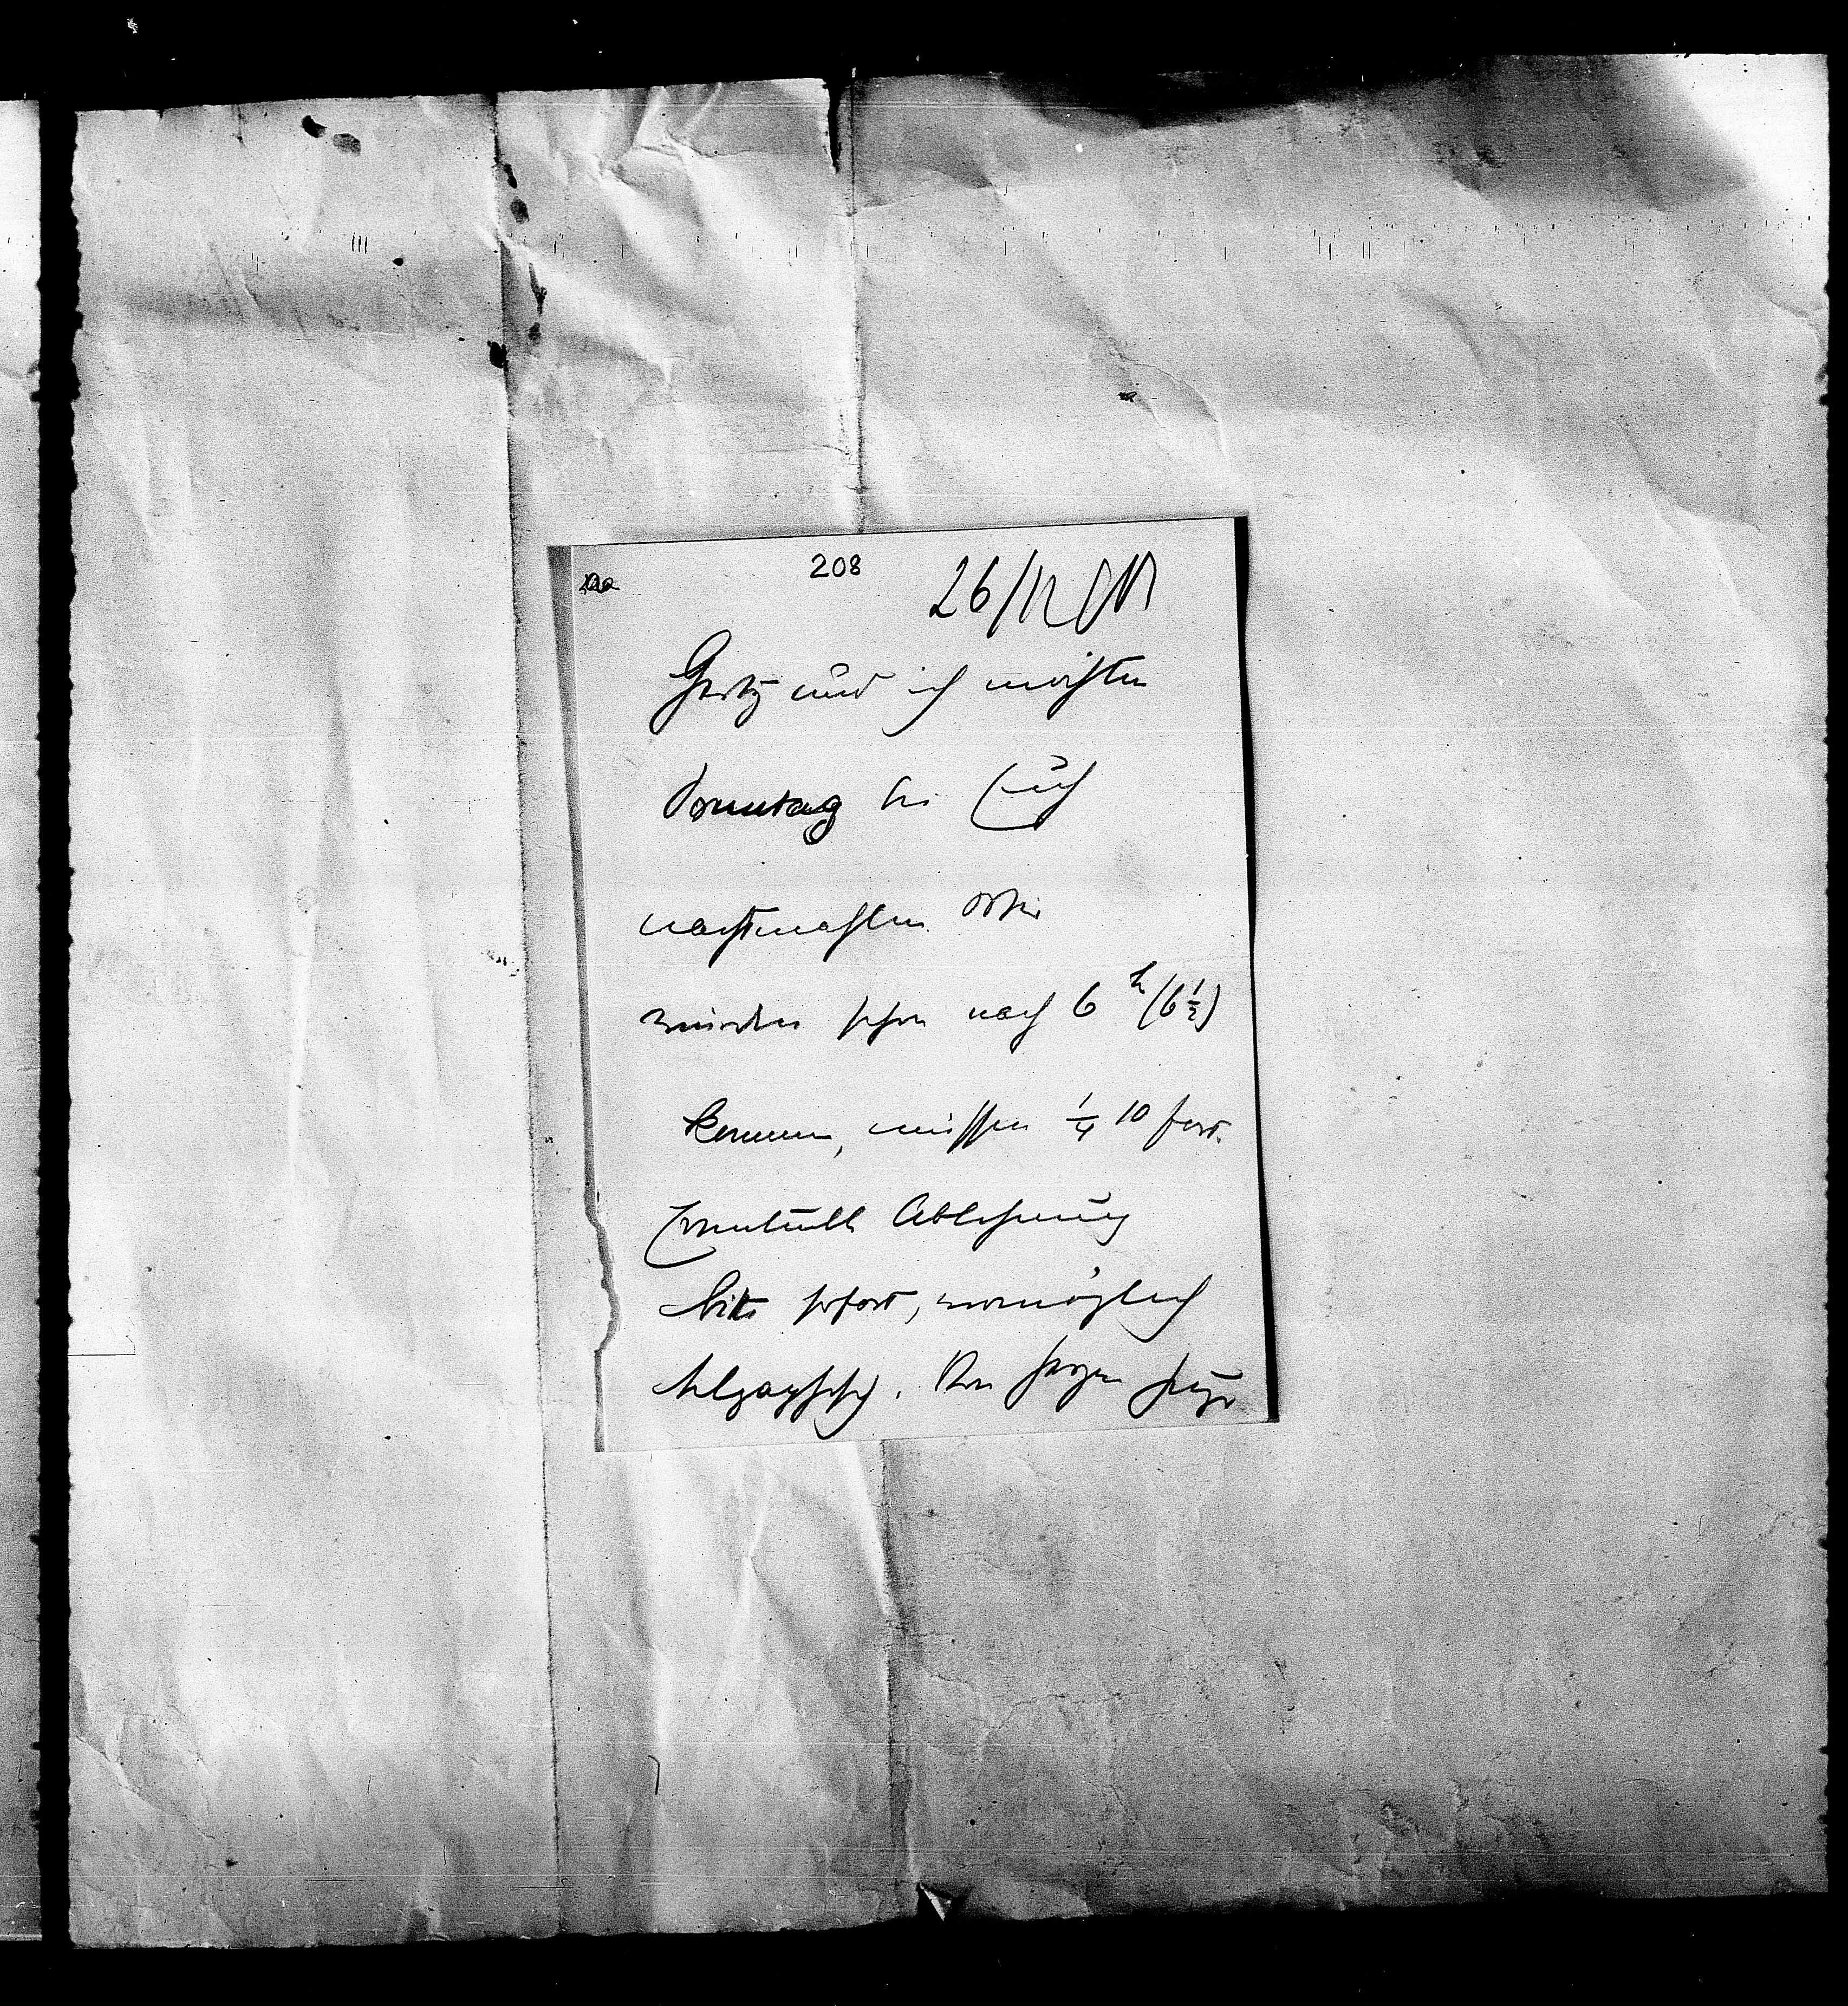 208
26/12
und ich möchten
Sonntag bei Euch
nachtmahlen. Wir
würden schon nach 6 h (6 ½)
kommen, müssen ¼ 10 fort.
Eventuelle Ablehnung
bitte sofort, womöglich
telegraphisch.